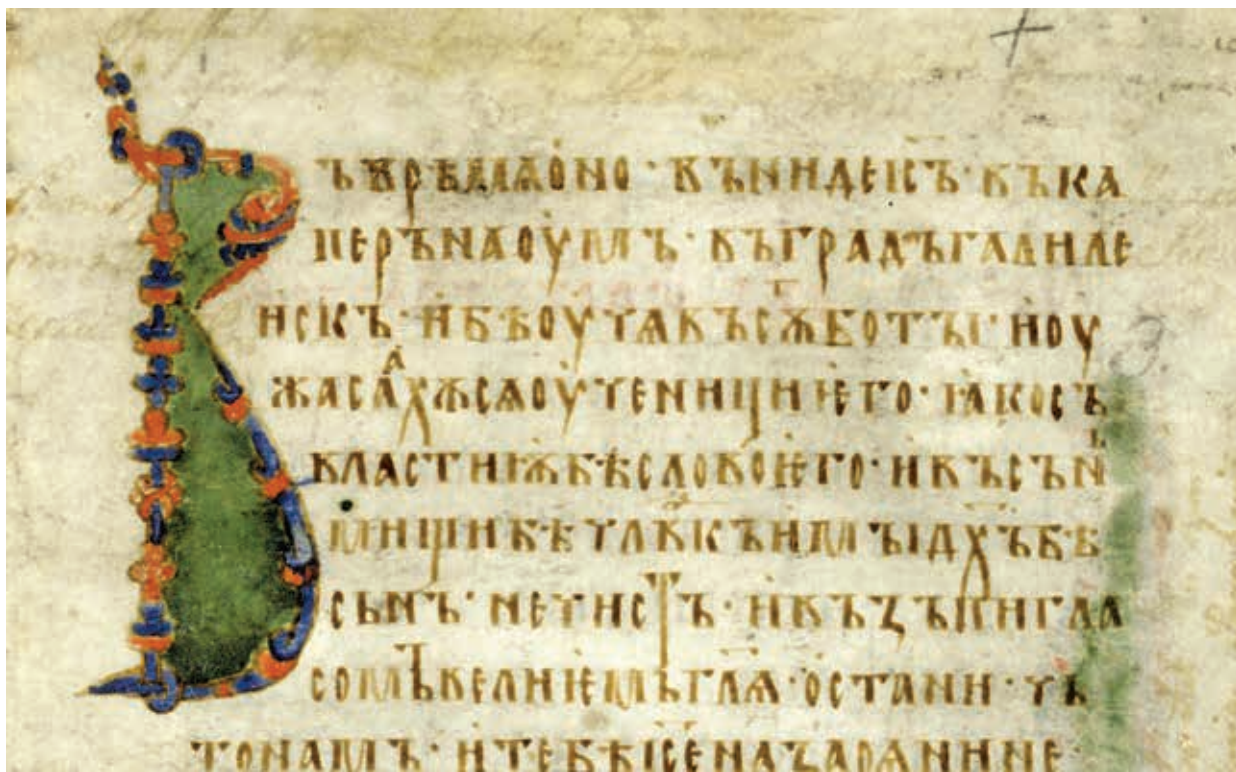 Въ врѣмѧ оно · въниде іс҃ъ · въ ка
перънаоумъ · въ градъ галиле
искъ · и бѣ оучѧ въ сѫботꙑ · и оу
жасаахѫсѧ оученици ѥго · ꙗко съ
властиѭ бѣ слово ѥго · и въ сънь
мищи бѣ чл҃вкъ имꙑ дх҃ъ бѣ
сьнъ · нечистъ · и възъпи гла
сомъ велиѥмъ гл҃ѧ · остани · чь
то намъ · и тебѣ іс҃е назарѧнине ·